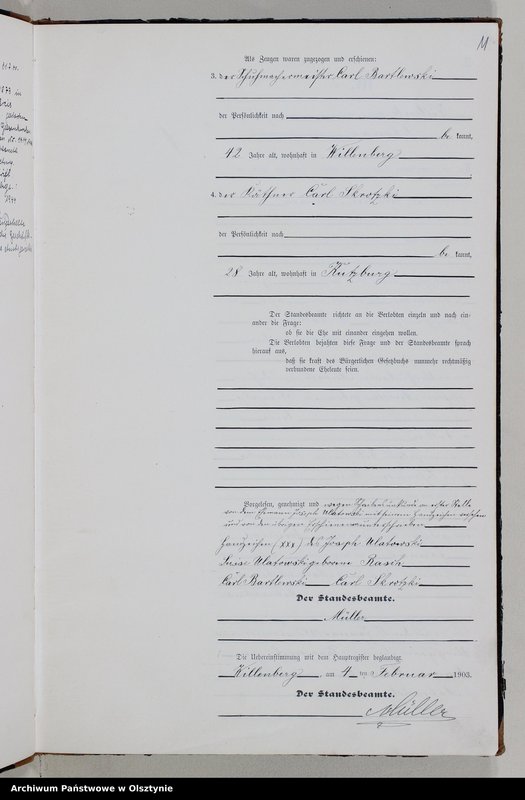 11
Als Zeugen waren zugezogen und erschienen:
3. der Schuhmachermeister Carl Bartlewski
der Persönlichkeit nach
be kannt,
42 Jahre alt, wohnhaft in Willenberg
4. der Käthner Carl Skrotzki
der Persönlichkeit nach
be kannt,
28 Jahre alt, wohnhaft in Kutzburg
Der Standesbeamte richtete an die Verlobten einzeln und nach ein-
ander die Frage:
ob sie die Ehe mit einander eingehen wollen.
Die Verlobten bejahten diese Frage und der Standesbeamte sprach
hierauf aus,
daß sie kraft des Bürgerlichen Gesetzbuchs nunmehr rechtmäßig
verbundene Eheleute seien.
Vorgelesen, genehmigt und wegen Schreibunkunde an erster Stelle
von dem Ehemann Joseph Ulatowski mit seinem Handzeichen versehen
und von den übrigen Erschienenen unterschrieben
Handzeichen (xxx) des Joseph Ulatowski
Luise Ulatowski geborene Rasch
Carl Bartlewski Carl Skrotzki
Der Standesbeamte.
Müller
Die Uebereinstimmung mit dem Hauptregister beglaubigt.
Willenberg, am 4 ten Februar 1903.
Der Standesbeamte.
Müller
Archiwum Państwowe w Olsztynie